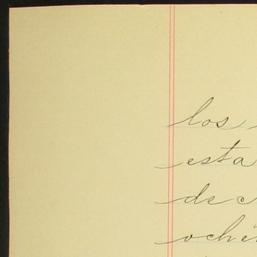 los
esta
de c
oche